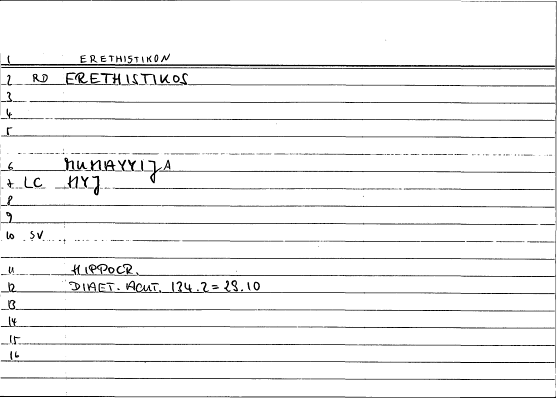 1 ERETHISTIKON
2 RD ERETHISTIKOS
3
4
5
6 MUHAYYIJA
7 LC HYJ
8
9
10 SV
11 HIPPOCR.
12 DIAET. ACUT. 124.2=29.10
13
14
15
16